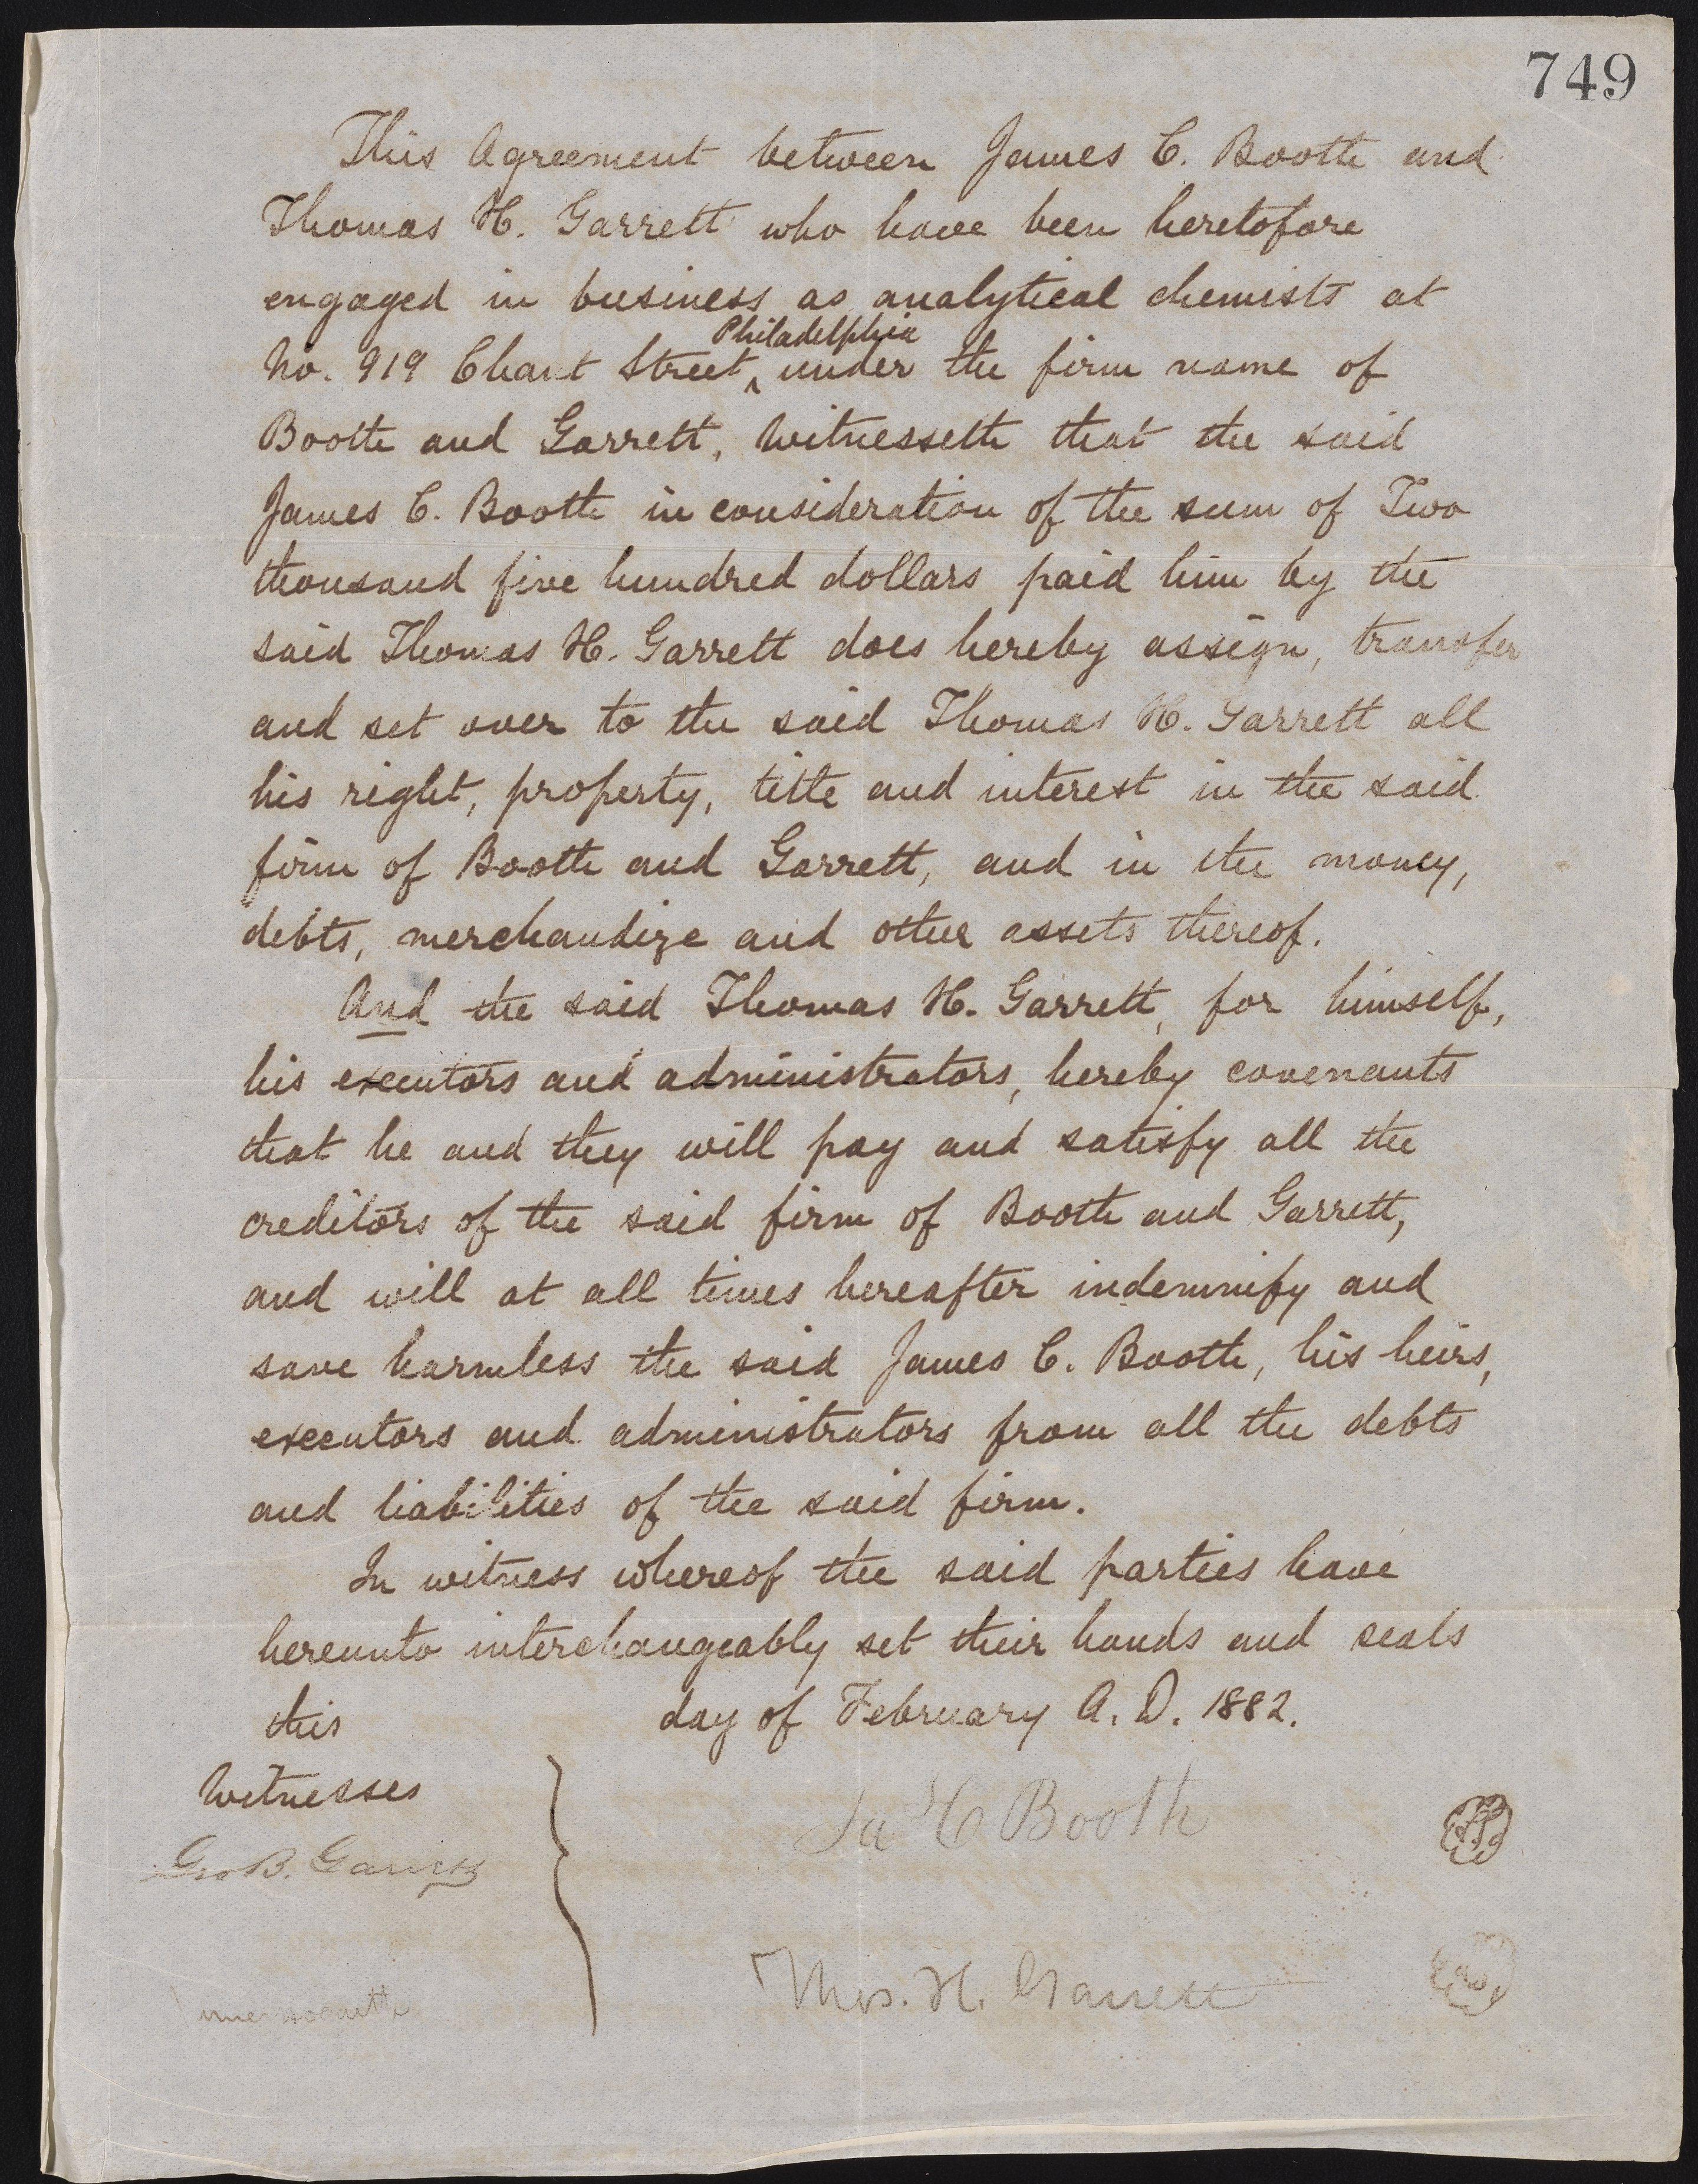 749
This Agreement between James C. Booth and
Thomas H. Garrett who have been heretofore
engaged in business as analytical chemists at
Philadelphia
No. 919 Chant Street, ^ under the firm name of
Booth and Garrett, Witnesseth that the said
James C. Booth in consideration of the sum of Two
thousand five hundred dollars paid him by the
said Thomas H. Garrett does hereby assign, transfer
and set over to the said Thomas H. Garrett all
his right, property, title and interest in the said
firm of Booth and Garrett, and in the money,
debts, merchandize and other assets thereof.
And the said Thomas H. Garrett, for himself,
his executors and administrators, hereby covenants
that he and they will pay and satisfy all the
creditors of the said firm of Booth and Garrett,
and will at all times hereafter indemnify and
save harmless the said James C. Booth, his heirs,
executors and administrators from all the debts
and liabilities of the said firm.
In witness whereof the said parties have
hereunto interchangeably set their hands and seals
this day of February A. D. 1882.
Witnesses
Ja C Booth
Geo B. Garrett
Thos. H. Garrett